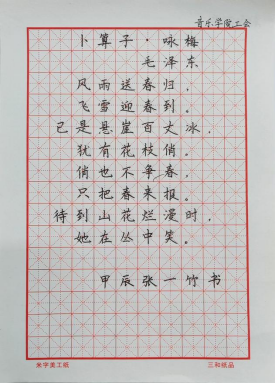 音乐学院工会
卜算子·咏梅
毛泽东
风雨送春归，
飞雪迎春到。
已是悬崖百丈冰，
犹有花枝俏。
俏也不争春，
只把春来报。
待到山花烂漫时，
她在丛中笑。
甲辰张一竹书
米字美工纸
三和纸品